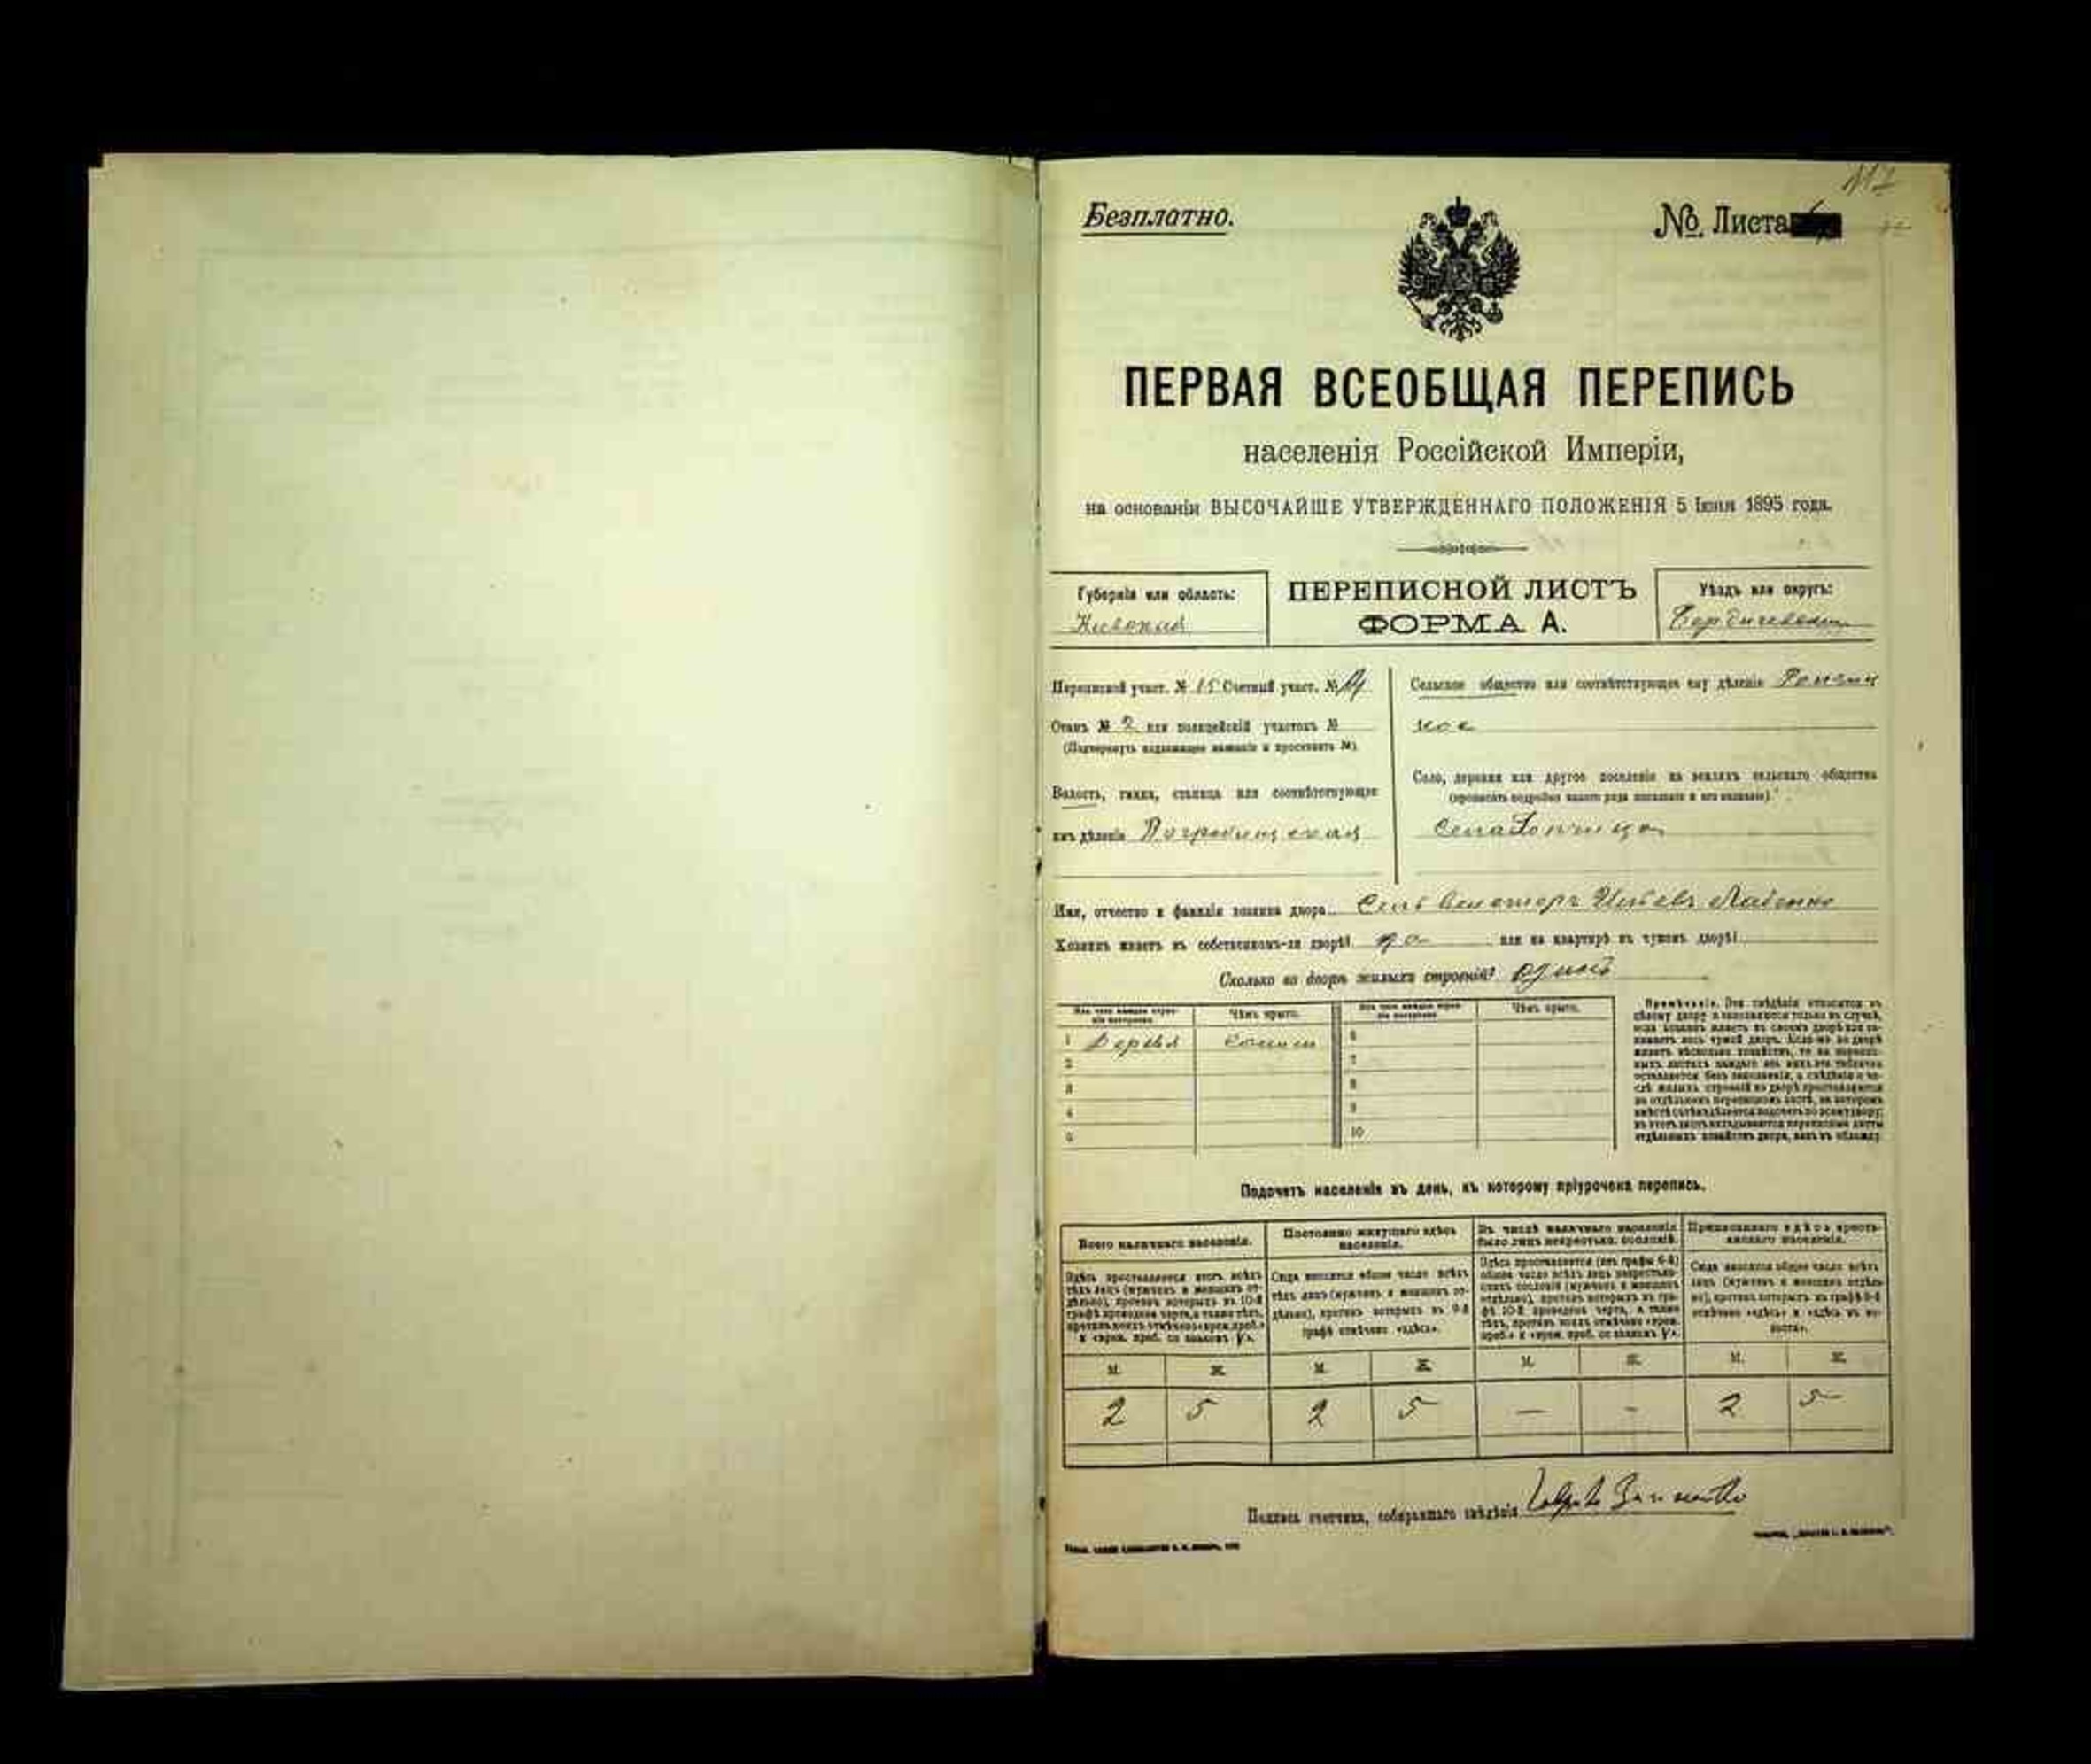 Безплатно.
№ Листа
ПЕРВАЯ ВСЕОБЩАЯ ПЕРЕПИСЬ
населенія Россійской Имперіи,
на основаніи ВЫСОЧАЙШЕ УТВЕРЖДЕННАГО ПОЛОЖЕНІЯ 5 Іюня 1895 года.
Губернія или область:
Кіевская
ПЕРЕПИСНОЙ ЛИСТЪ
ФОРМА А.
Уѣздъ или округъ:
Бердичевскій
Переписной участ. № 15 Счетный участ. №
Станъ № 2 или полицейскій участокъ №
(Подчеркнуть надлежащее названіе и проставить №).
Волость, гмина, станица или соотвѣтствующее
имъ дѣленіе Погребищская
Сельское общество или соотвѣтствующее ему дѣленіе
ное
Село, деревня или другое поселеніе на земляхъ сельскаго общества
(прописать подробно какого рода поселеніе и его названіе).
Села
Имя, отчество и фамилія хозяина двора
Хозяинъ живетъ въ собственномъ-ли дворѣ? да или на квартирѣ въ чужомъ дворѣ?
Сколько во дворѣ жилыхъ строеній? одинъ
Изъ чего каждое строеніе построено.
Чѣмъ крыто.
Изъ чего каждое строеніе построено.
Чѣмъ крыто.
1 Дерева Соломы 6
2 7
3 8
4 9
5 10
Примѣчаніе. Эти свѣдѣнія относятся къ
цѣлому двору и заполняются только въ случаѣ,
если хозяинъ живетъ въ своемъ дворѣ или за-
нимаетъ весь чужой дворъ. Если-же во дворѣ
живетъ нѣсколько хозяйствъ, то на перепис-
ныхъ листахъ каждаго изъ нихъ эта табличка
оставляется безъ заполненія, а свѣдѣнія о чи-
слѣ жилыхъ строеній во дворѣ проставляются
на отдѣльномъ переписномъ листѣ, на которомъ
вмѣстѣ съ тѣмъ дѣлается подсчетъ по всему двору;
въ этотъ листъ вкладываются переписные листы
отдѣльныхъ хозяйствъ двора, какъ въ обложку.
Подсчетъ населенія въ день, къ которому пріурочена перепись.
Всего наличнаго населенія.
Здѣсь проставляется итогъ всѣхъ
тѣхъ лицъ (мужчинъ и женщинъ от-
дѣльно), противъ которыхъ въ 10-й
графѣ проведена черта, а также тѣхъ,
противъ коихъ отмѣчено «врем. преб.»
и «врем. преб. со знакомъ V».
Постоянно живущаго здѣсь
населенія.
Сюда вносится общее число всѣхъ
тѣхъ лицъ (мужчинъ и женщинъ от-
дѣльно), противъ которыхъ въ 9-й
графѣ отмѣчено «здѣсь».
Въ числѣ наличнаго населенія
было лицъ некрестьян. сословій.
Здѣсь проставляется (изъ графы 6-й)
общее число всѣхъ лицъ некрестьян-
скихъ сословій (мужчинъ и женщинъ
отдѣльно), противъ которыхъ въ гра-
фѣ 10-й проведена черта, а также
тѣхъ, противъ коихъ отмѣчено «врем.
преб.» и «врем. преб. со знакомъ V».
Приписаннаго здѣсь кресть-
янскаго населенія.
Сюда вносится общее число всѣхъ
лицъ (мужчинъ и женщинъ отдѣль-
но), противъ которыхъ въ графѣ 8-й
отмѣчено «здѣсь» и «здѣсь въ во-
лости».
М. Ж. М. Ж. М. Ж. М. Ж.
2 5 2 5 — - 2 5
Подпись счетчика, собиравшаго свѣдѣнія